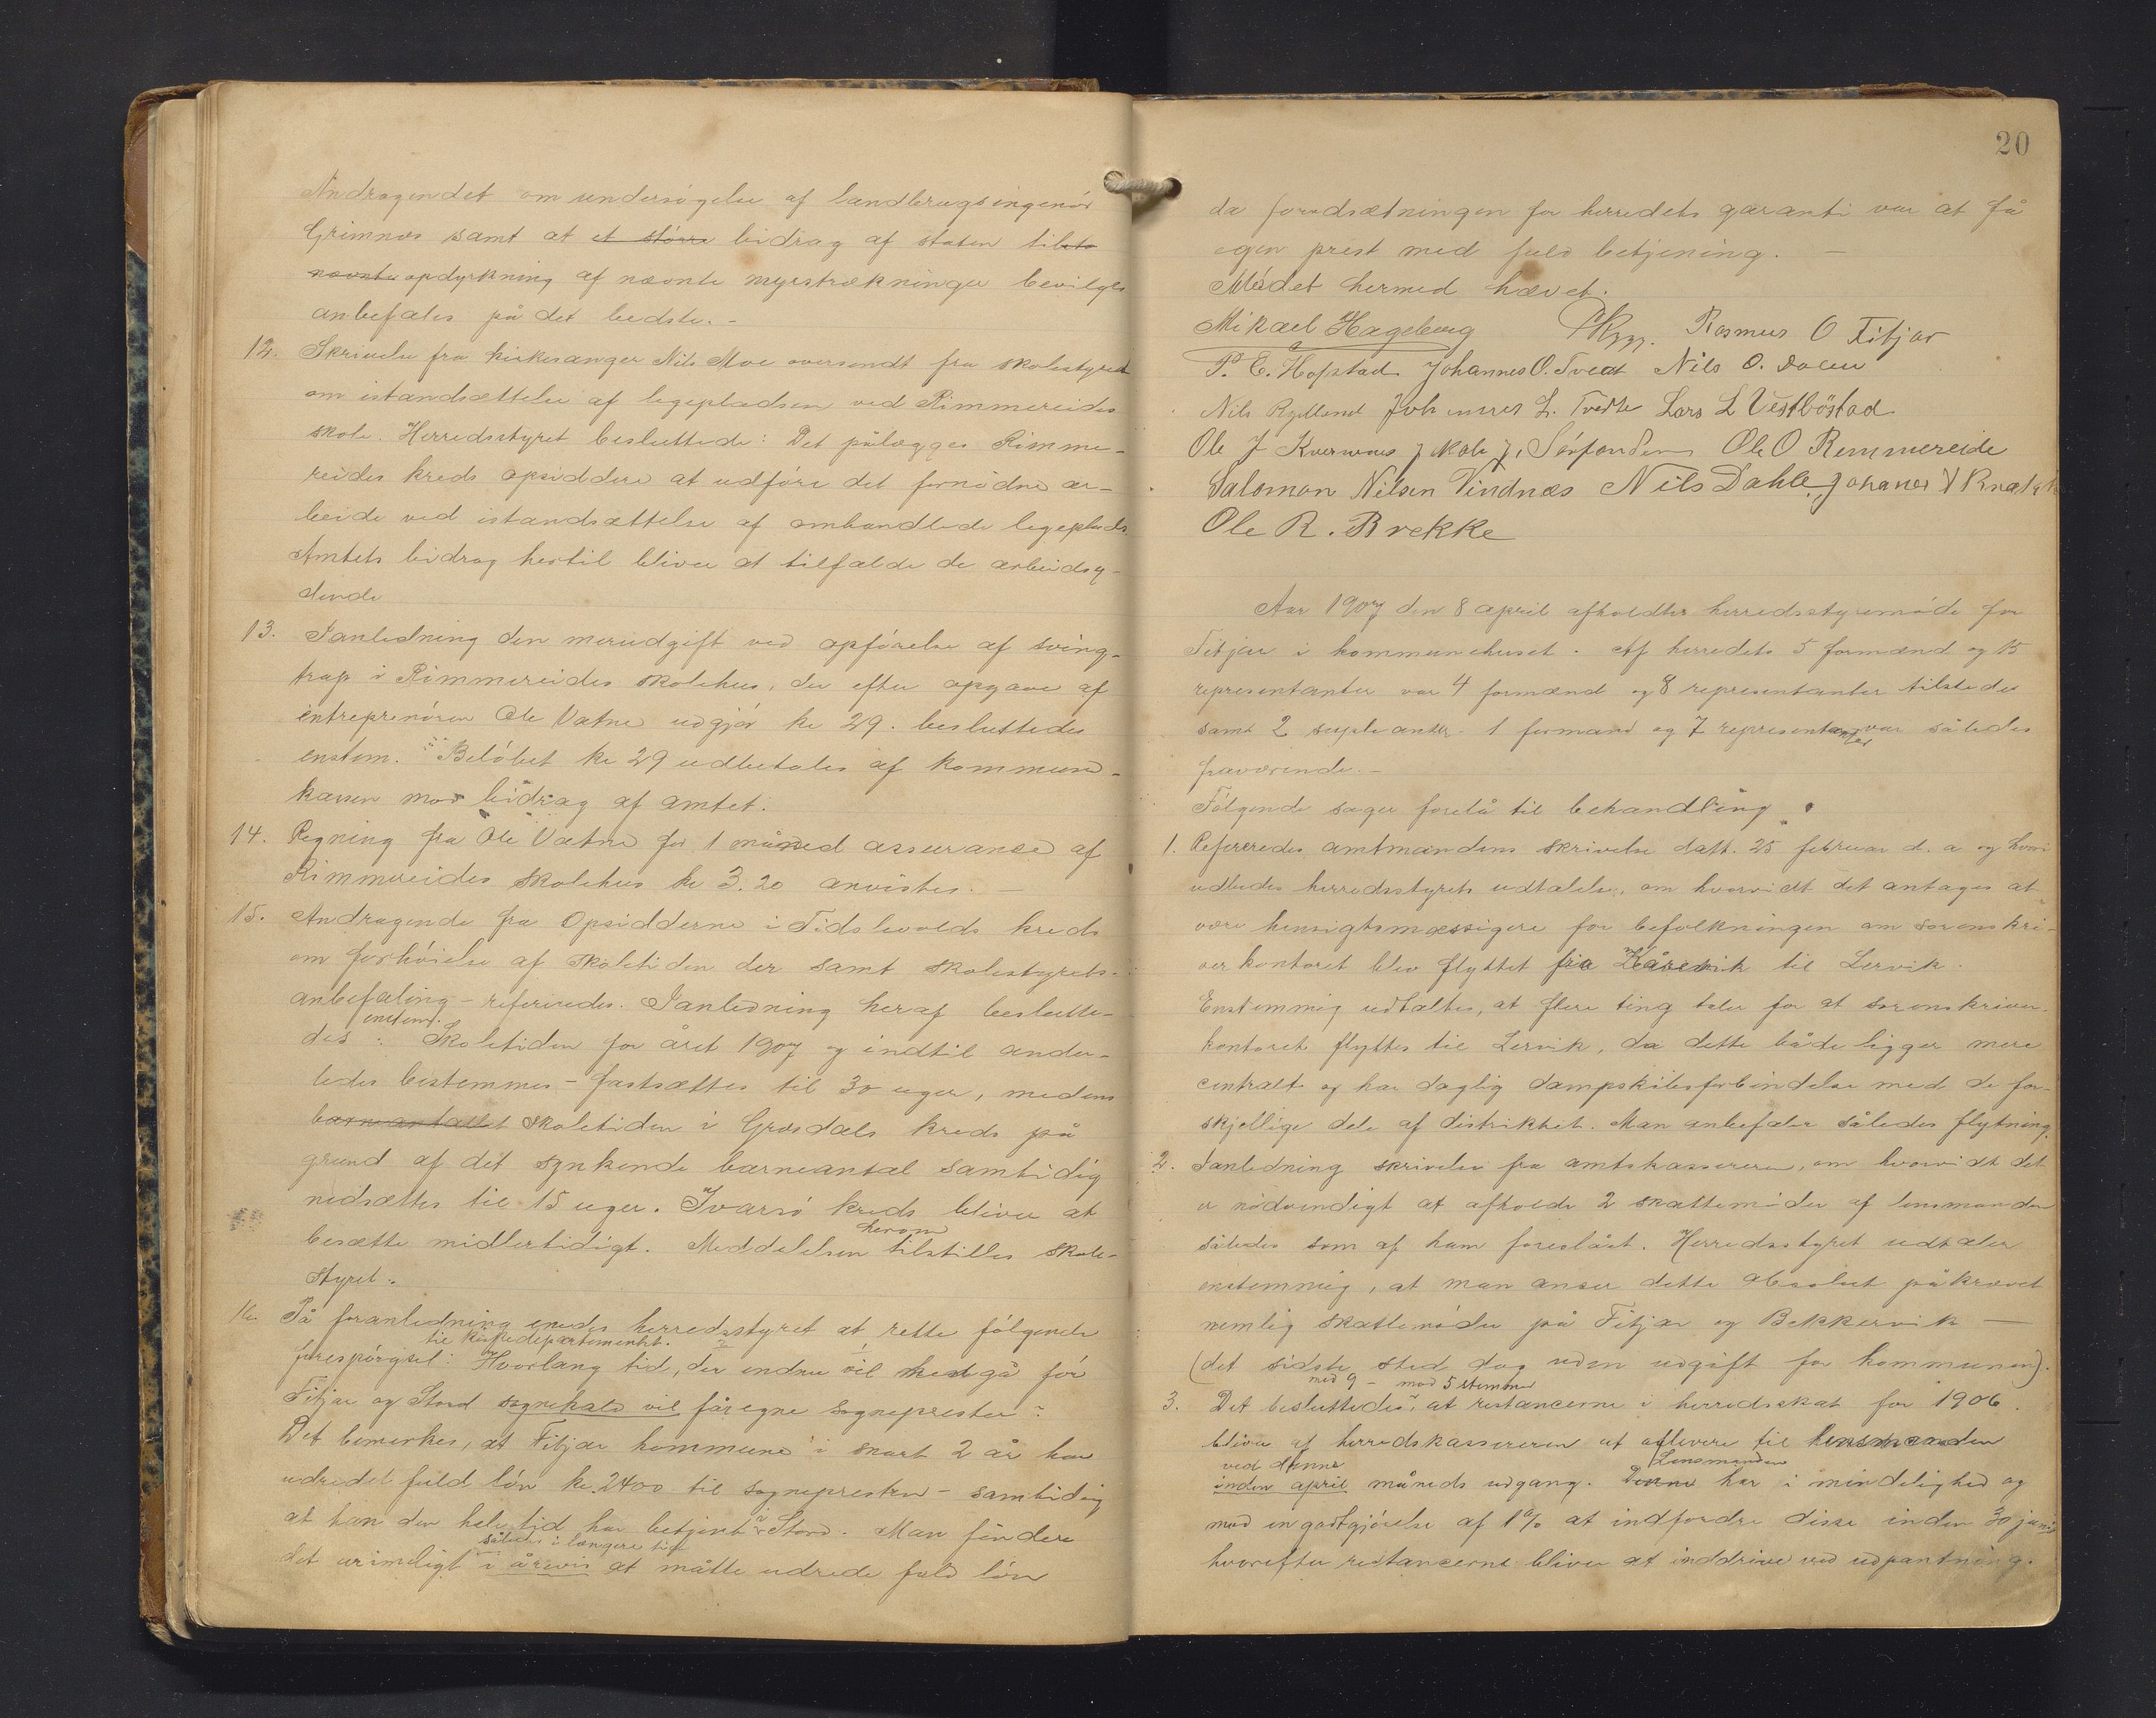 Andragendet om undersøgelse af landbrugsingeniør
Grimnæs samt at et større bidrag af staten til
nævnte opdyrkning af nævnte myrstrækninger bevilges
anbefales på det bedste. –
12. Skrivelse fra kirkesanger Nils Moe oversendt fra skolestyret
om istandsættelse af legepladsen ved Rimmereides
skole. Herredsstyret besluttede: Det pålægges Rimme-
reides kreds opsiddere at udføre det fornødne ar-
beide ved istandsættelse af omhandlede legeplads.
Amtets bidrag hertil bliver at tilfalde de arbeidsy-
dende
13. Ianledning den merudgift ved opførelse af sving-
trap i Rimmereides skolehus, der efter opgave af
entreprenøren Ole Vatne udgjør kr 29. besluttedes
enstem. Beløbet kr 29 udbetales af kommune-
kassen mod bidrag af amtet.
14. Regning fra Ole Vatne for 1 måned assurance af
Rimmereides skolehus kr 3.20 anvistes. –
15. Andragende fra Opsidderne i Tislevolds kreds
om forhøielse af skoletiden der samt skolestyrets
anbefaling – refereredes. Ianledning heraf beslutte-
enstem.
des : Skoletiden for året 1907 og indtil ander-
ledes bestemmes – fastsættes til 30 uger, medens
barneantallet skoletiden i Grøsdals kreds på
grund af det synkende barneantal samtidig
nedsættes til 15 uger. Ivarsø kreds bliver at
herom
besætte midlertidigt. Meddelelsen tilstilles skole-
styret.
16. På foranledning enedes herredsstyret at rette følgende
til kirkedepartementet.
forespørgsel: Hvorlang tid, der endnu vil medgå før
Fitjar og Stord sognekald vil får egne sogneprester?
Det bemerkes, at Fitjar kommune i snart 2 år har
udredet fuld løn kr. 2400 til sognepresten – samtidig
at han den hele tid har betjent Stord. Man finder
således i længere tid
det urimeligt i årevis at måtte udrede fuld løn
20
da forudsætningen for herredets garanti var at få
egen prest med fuld betjening. –
Mødet hermed hævet.
Mikael Hageberg Rasmus O Fitjar
P. C. Hofstad Johannes O. Tveit Nils O. Dalen
Nils Rydland Johannes L. Tveite Lars L Vestbøstad
Ole J Kvernenes Jakob J. Sørfonden Ole O Remmereide
Salomon Nilsen Vindnæs Nils Dahle, Johanes
Ole R. Brekke
Aar 1907 den 8 april afholdtes herredsstyremøde for
Fitjar i kommunehuset. Af herredets 5 formænd og 15
representanter var 4 formænd og 8 representanter tilstede
samt 2 supleanter. 1 formand og 7 representanter var således
fraværende. –
Følgende sager forelå til behandling.
1. Refereredes amtmandens skrivelse datt. 25 februar d. a og hvori
udbedes herredsstyrets udtalelse, om hvorvidt det antages at
være hensigtsmæssigere for befolkningen om sorenskri-
verkontoret blev flyttet fra Kårevik til Lervik.
Enstemmig udtaltes, at flere ting taler for at sorenskriver-
kontoret flyttes til Lervik, da dette både ligger mere
centralt og har daglig dampskibsforbindelse med de for-
skjellige dele af distriktet. Man anbefaler således flytning.
2. Ianledning skrivelse fra amtskassereren, om hvorvidt det
er nødvendigt at afholde 2 skattemøder af lensmanden
således som af ham foreslået. Herredsstyret udtaler
enstemmig, at man anser dette absolut påkrævet
nemlig skattemøder på Fitjar og Bekkervik –
(det sidste sted dog uden udgift for kommunen).
med 9 – mod 5 stemmer
3. Det besluttedes, at restancerne i herredsskat for 1906
bliver af herredskassereren at aflevere til lensmanden
ved denne Lensmanden
inden april måneds udgang. Denne har i mindelighed og
mod en godtgjørelse af 1% at indfordre disse inden 30 juni
hvorefter restancerne bliver at inddrive ved udpantning.